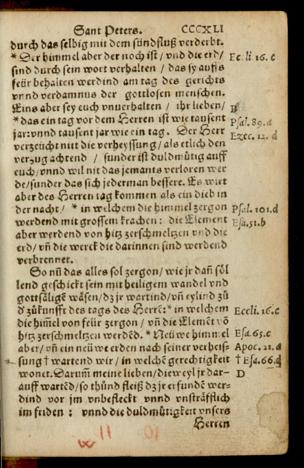 Sant Peters. CCCXLI
durch das selbig mit dem sündfluß verderbt.
*Der himmel aber der noch ist/ vnd die erd/ Eccli 16. c
sind durch sein wort verhalten/ das sy auffs
feür behalten werdind am tag des gerichts
vnnd verdamnus der gottlosen menschen.
Eins aber sey euch vnuerhalten/ ihr lieben/ B
*das ein tag vor dem Herren ist wie tausent Psal. 89. a
jar: vnnd tausent jar wie ein tag. Der Herr Ezec. 12. d
verzeücht nitt die verheyssung/ als etlich den
verzug achtend/ sunder ist duldmütig auff
euch/ vnnd wil nit das jemants verloren wer
de/ sunder das sich jederman bessere. Es wirt
aber des Herren tag kommen als ein dieb in
der nacht/ *in welchem die himmel zergon Psal. 101. d
werdend mit grossem krachen: die Element Esa. 51. b
aber werdend von hitz zerschmeltzen vnd die
erd/ vñ die werck die darinnen sind werdend
verbrennet.
So nū das alles sol zergon/ wie jr dañ söl
lend geschickt sein mit heiligem wandel vnd
gottsäligē wäsen/ dz jr wartind/ vñ eylind zů
d zůkunfft des tags des Herrē: *in welchem Eccli. 16. c
die him̄el von feür zergon/ vñ die Elemēt vō
hitz zerschmeltzen werdēd. *Neüwe himmel Esa. 65. c
aber/ vñ ein neüwe erden nach seiner verheis- Apoc. 21. a
sung † wartend wir/ in welchē gerechtigkeit † Esa. 66. d
wonet. Darum̄ meine lieben/ diewyl jr dar- D
auff wartēd/ so thůnd fleiß dz jr erfundē wer-
dind vor jm vnbefleckt vnnd vnsträfflich
im friden: vnnd die duldmütigkeit vnsers
Herren